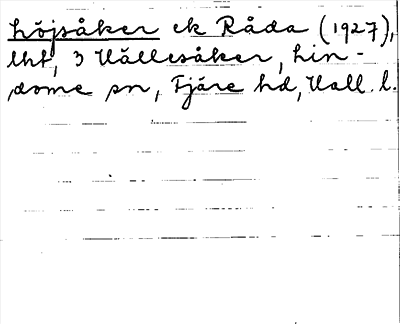 Höjsåker ek Råda (1927),
lht, 3 Hällesåker, Lin-
dome sn, Fjäre hd, Hall. l.